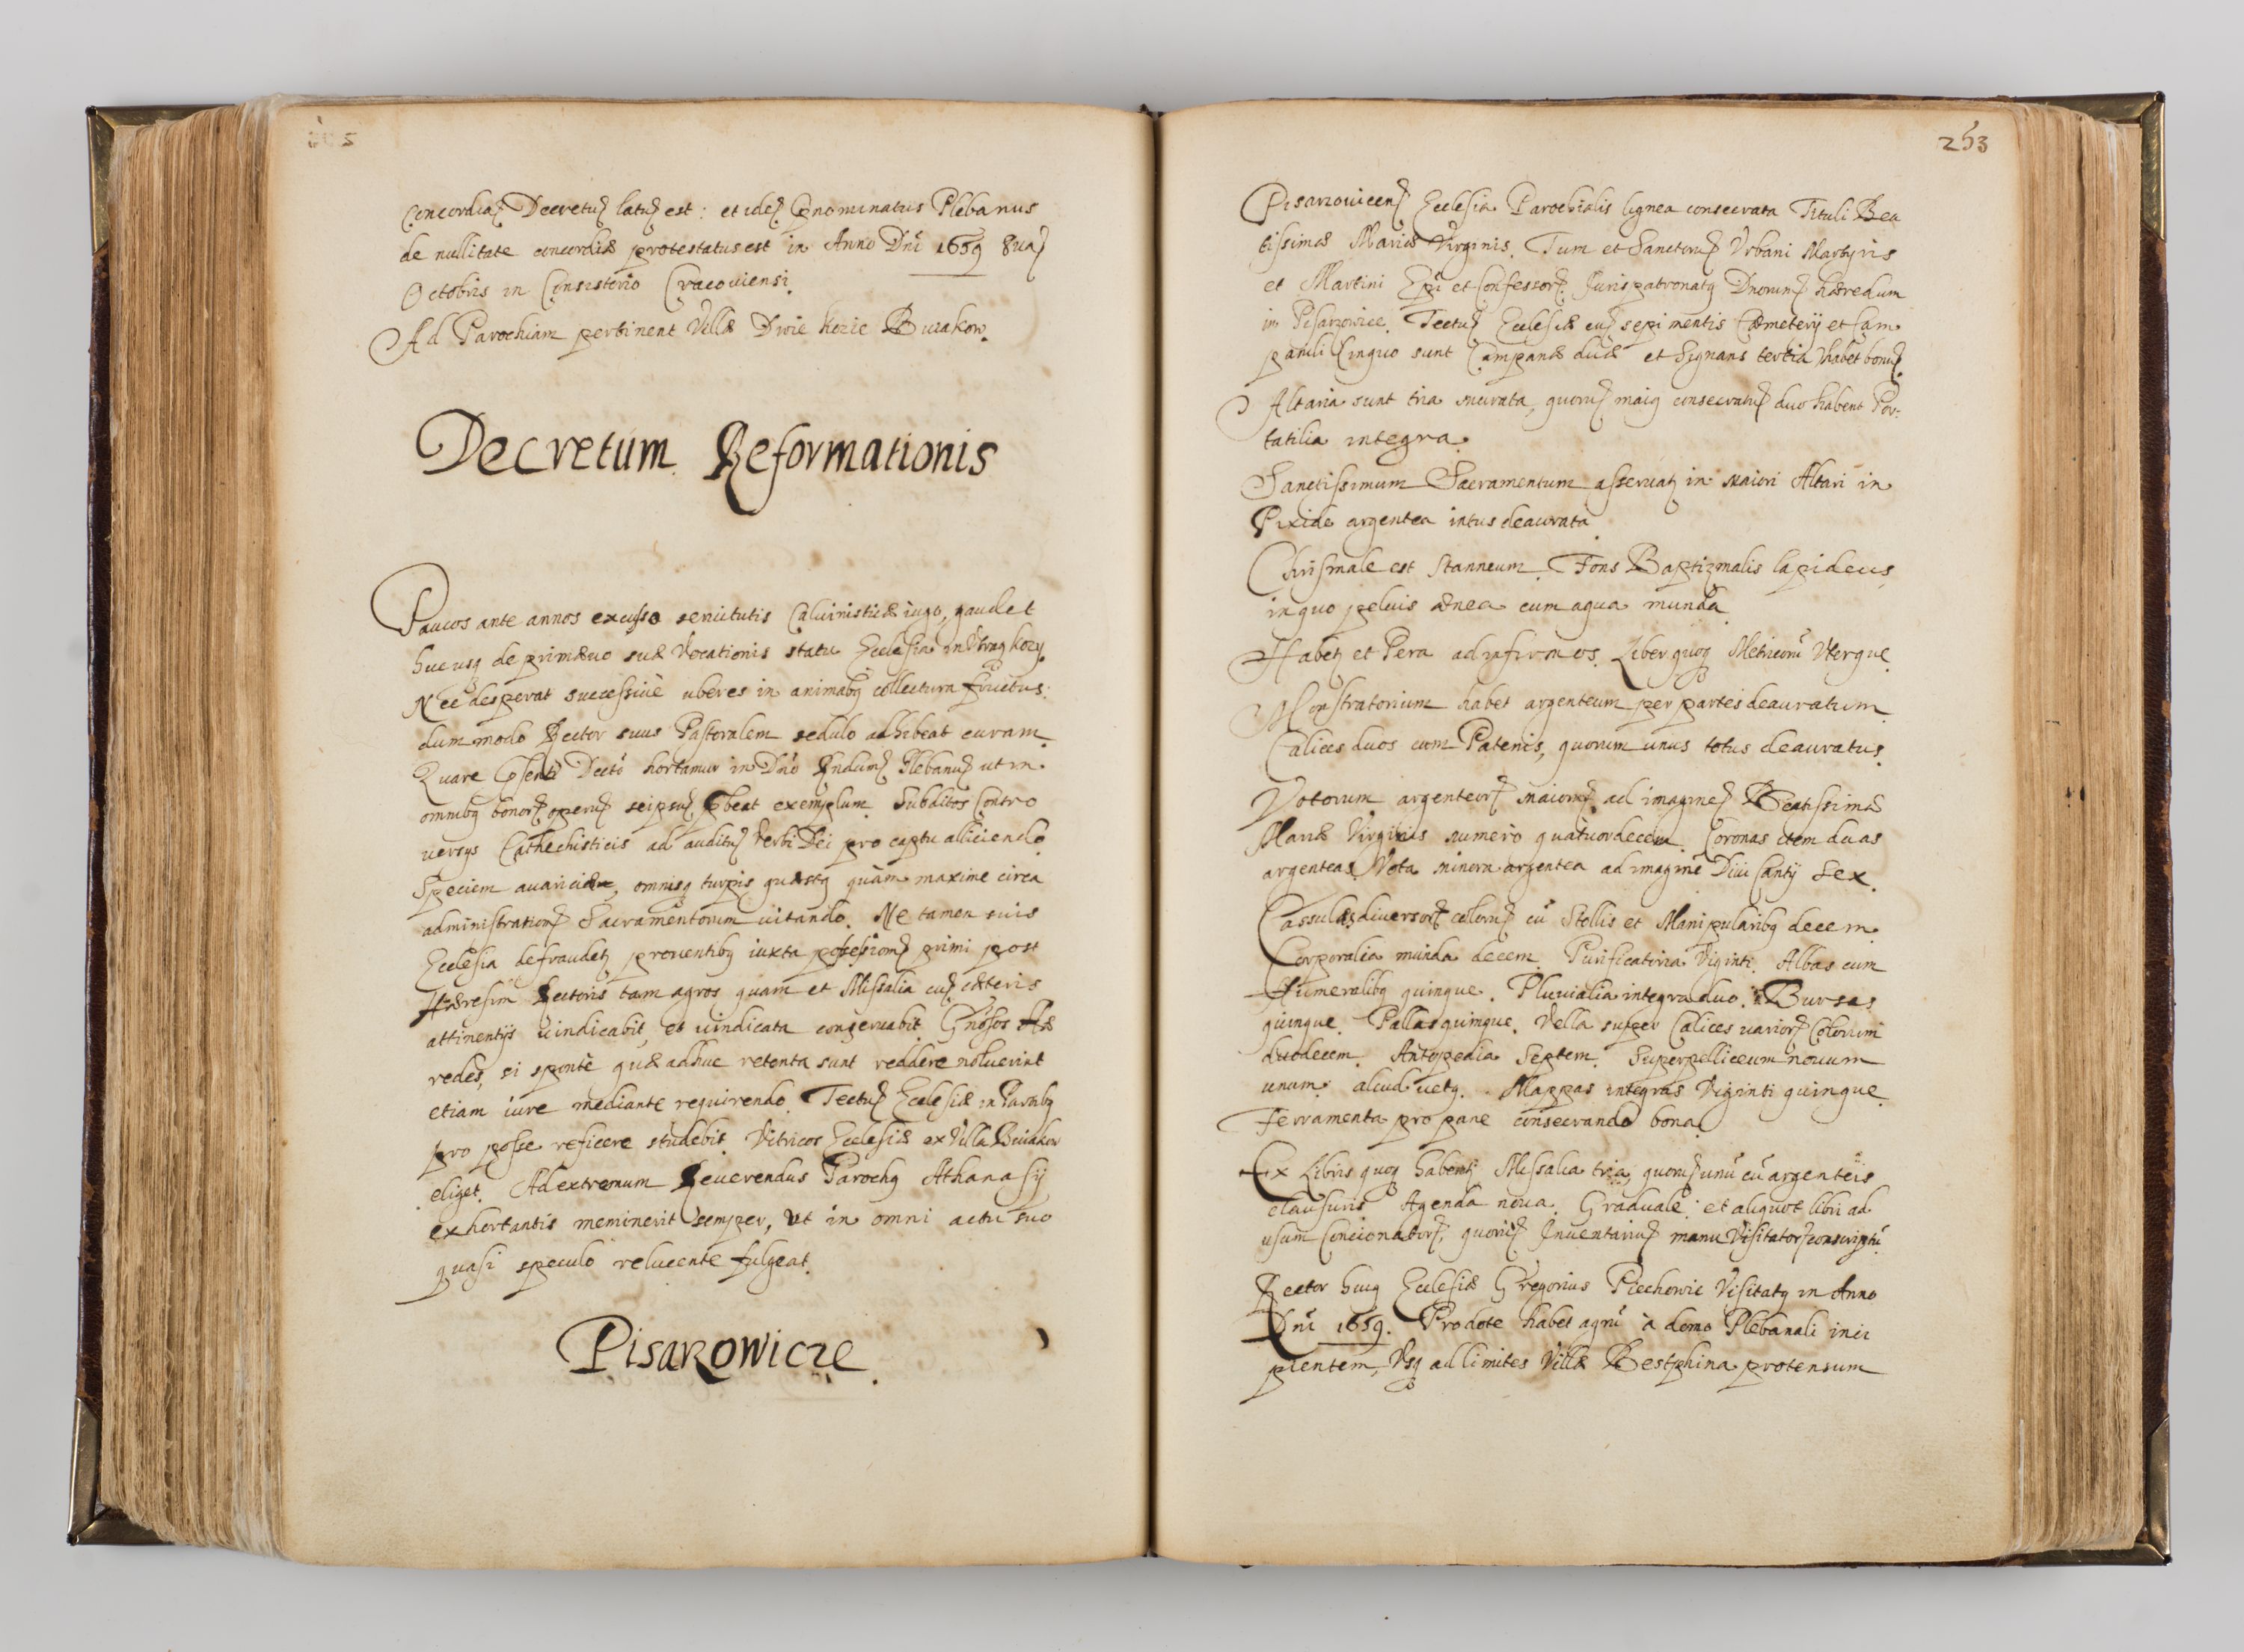 Concordiaʒ Decretuʒ latuʒ est: et ideʒ pnominatus Plebanus
de nullitate concordiæ protestatus est in Anno Dni 1659 8uaʒ
Octobris in Consistorio Cracouiensi.
Ad Parochiam pertinent Villæ Dwie Kozie Buiakow.
Decretum Reformationis
Paucos ante annos excusso seruitutis Caluinisticæ iugo, gaudet
huc usq de primæuo suæ Vocationis statu Ecclesia in Vtraq kozy.
Nec desperat successiuè uberes in animabq collectura fructus:
dummodo Rector suus Pastoralem sedulo adhibeat curam.
Quare psenti Decto hortamur in Dno Rndumʒ Plebanuʒ ut in
omnibq bonorʒ operuʒ seipsuʒ pbeat exemplum. Subditos Contro
uersys Cathechisticis ad audituʒ Verbi Dei pro captu aliciendo.
Speciem auariciæ, omnisq turpis quæstq quàm maxime circa
administrationeʒ Sacramentorum uitando. Ne tamen suis
Ecclesia defraudetʒ prouentibq iuxta possessionʒ primi post
Hæresim Rectoris tam agros quam et Missalia cuʒ cæteris
attinentijs uindicabit, et uindicata conseruabit. Gnosos Hæ
redes, si sponte quæ adhuc retenta sunt reddere noluerint
etiam iure mediante requirendo. Tectuʒ Ecclesiæ in Partibq
pro posse reficere studebit. Vitricos Ecclesiæ ex Villa Buiakow
eliget. Ad extremum Reuerendus Parochq Athanasij
exhortantis meminerit semper, Vt in omni actu suo
quasi speculo relucente fulgeat.
Pisarzowicze.
253
Pisarzouicenʒ Ecclesia Parochialis lignea consecrata Tituli Bea
tissimæ Mariæ Virginis. Tum et Sanctoruʒ Vrbani Martyris
et Martini Epi et Confessorʒ. Iuris patronatq Dnorumʒ hæredum
in Pisarzowice. Tectuʒ Ecclesiæ cuʒ sepimentis Cæmeterij et Cam
panili in quo sunt Campanæ duæ et Signans tertia habet bonuʒ.
Altaria sunt tria murata, quoruʒ maiq consecratuʒ duo habent Por:
tatilia integra.
Sanctissimum Sacramentum asseruatʒ in Maiori Altari in
Pixide argentea intus deaurata.
Chrismale est stanneum. Fons Baptizmalis lapideus
in quo peluis ænea cum aqua munda.
Habetʒ et Pera ad infirmos. Liber quoq Metricoru Vterque.
Monstratorium habet argenteum per partes deauratum.
Calices duos cum Patenis, quorum unus totus deauratus.
Votorum argenteorʒ maiorʒ ad imagineʒ Beatissimæ
Mariæ Virginis numero quatuordecem. Coronas item duas
argenteas. Vota minora argentea ad imagine Diui Cantij sex.
Cassulas diuersorʒ coloruʒ cu Stollis et Manipularibq decem.
Corporalia munda decem. Purificatoria Viginti. Albas cum
Humeralibq quinque. Pluuialia integra duo. Bursas
quinque. Pallas quinque. Vella super Calices uariorʒ Colorum
duodecem. Antipedia Septem. Superpelliceum nouum
unum. aliud uetq. Mappas integras Viginti quinque.
Ferramenta pro pane consecrando bona.
Ex Libris quoq habentʒ Missalia tria, quoruʒ unu cu argenteis
clausuris Agenda noua. Graduale. et aliquot libri ad
usum Concionatorʒ, quoruʒ Inuentariuʒ manu Visitatorʒ conscriptu
Rector huiq Ecclesiæ Gregorius Piechowic Visitatq in Anno
Dni 1659. Pro dote habet agru à domo Plebanali inci
pientem, Vsq ad limites Villæ Bestphina protensum